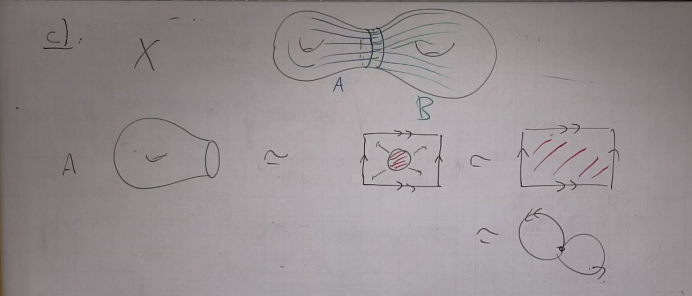 c).
X
A
B
A ≃ ≃
≃